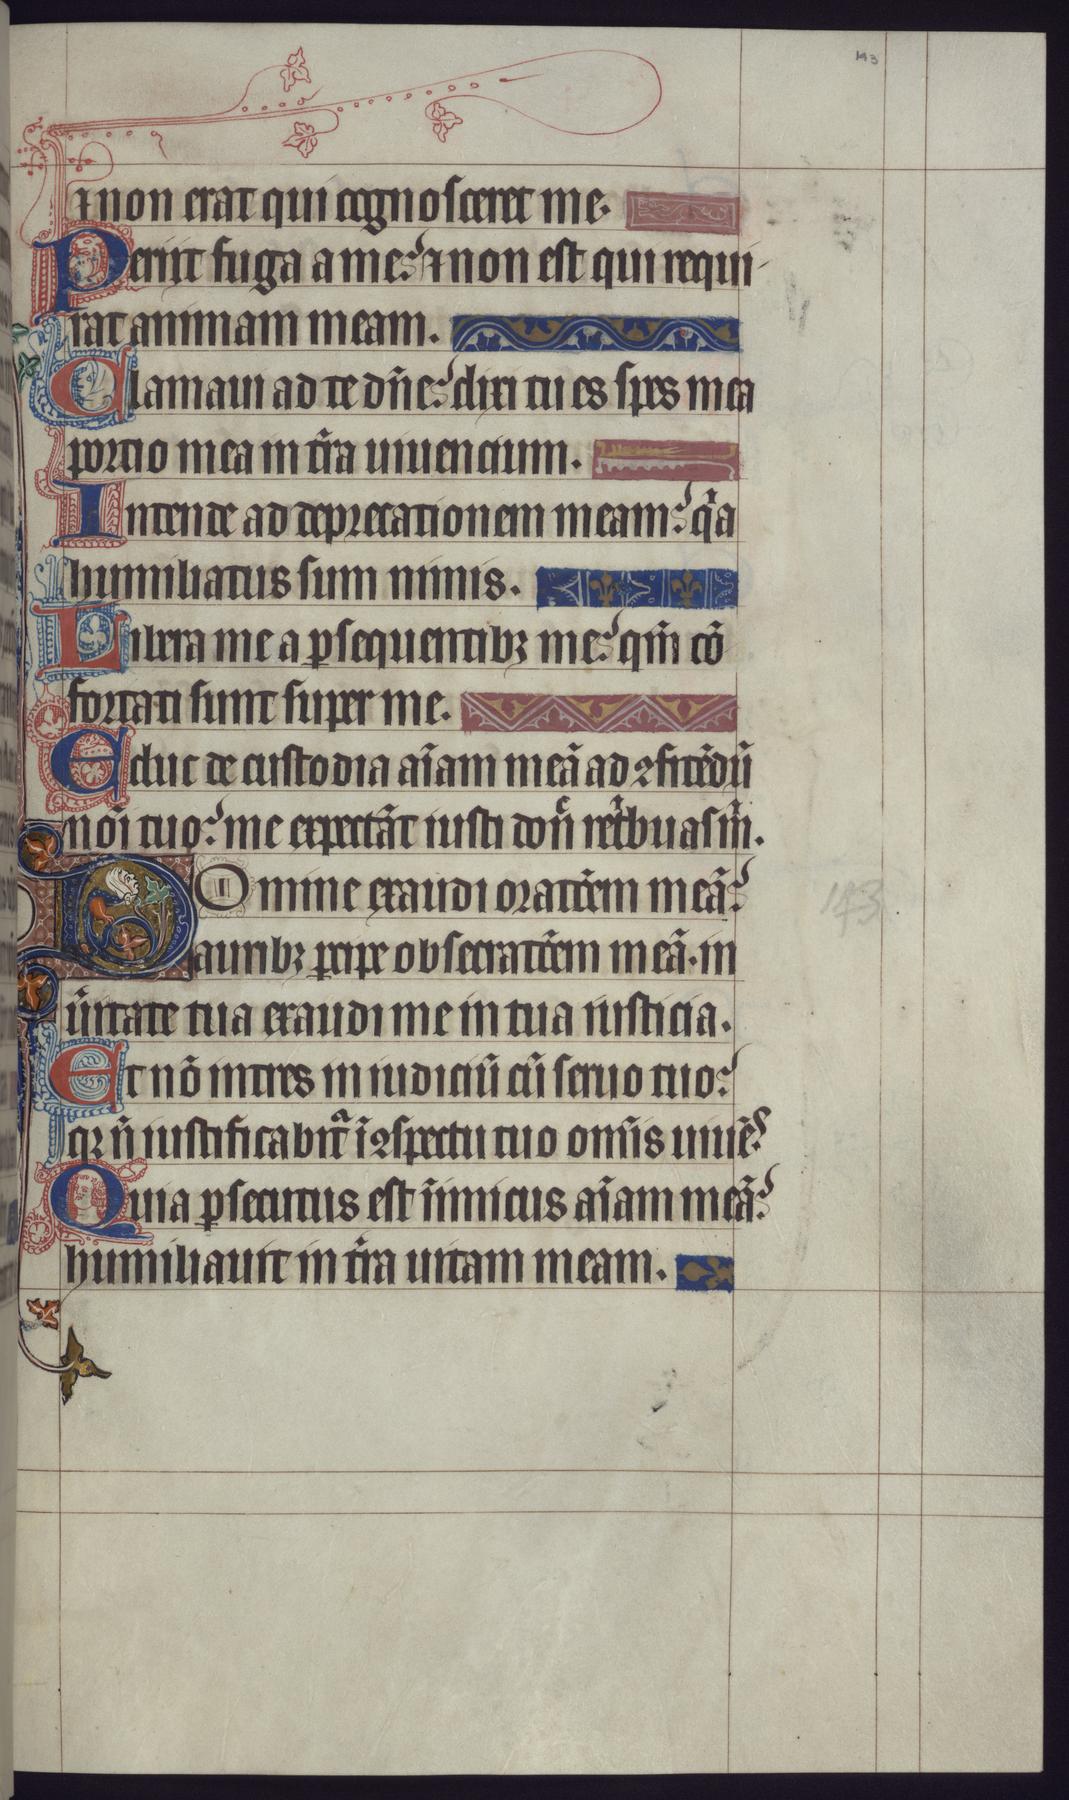 143
⁊ non erat qui cognosceret me.
Periit fuga a me: ⁊ non est qui requi
rat animam meam.
Clamaui ad te dn̄e: dixi tu es spes mea
portio mea in t̄ra uiuencium.
Intende ad deprecationem meam: q̄a
humiliatus sum nimis.
Libera me a ꝑsequentibꝫ me: qm̄ cō
fortati sunt super me.
Educ de custodia aīam meā ad ꝯfitēdū
noī tuo: me expectāt iusti don̄ ret̄buas m̄.
Domine exaudi orat̄cem meā:
auribꝫ ꝑcipe obsecrat̄cem meā. in
ūitate tua exaudi me in tua iusticia.
Et nō intres in iudiciū cū seruo tuo:
qꝛ n̄ iustificabit̄ ī ꝯspectu tuo omīs uiuēs
Quia ꝑsecutus est inimicus aīam meā:
humiliauit in t̄ra uitam meam.
143